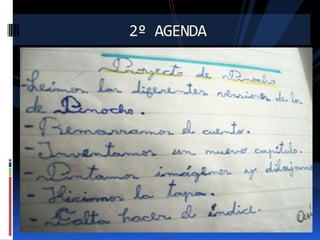 2º AGENDA
Proyecto de Pinocho
-Leímos las diferentes versiones de los
de Pinocho.
- Remarramos el cuento.
- Inventamos un nuevo capítulo.
- Pintamos imágenes y dibujamos
- Hicimos la tapa.
- Falta hacer el índice.